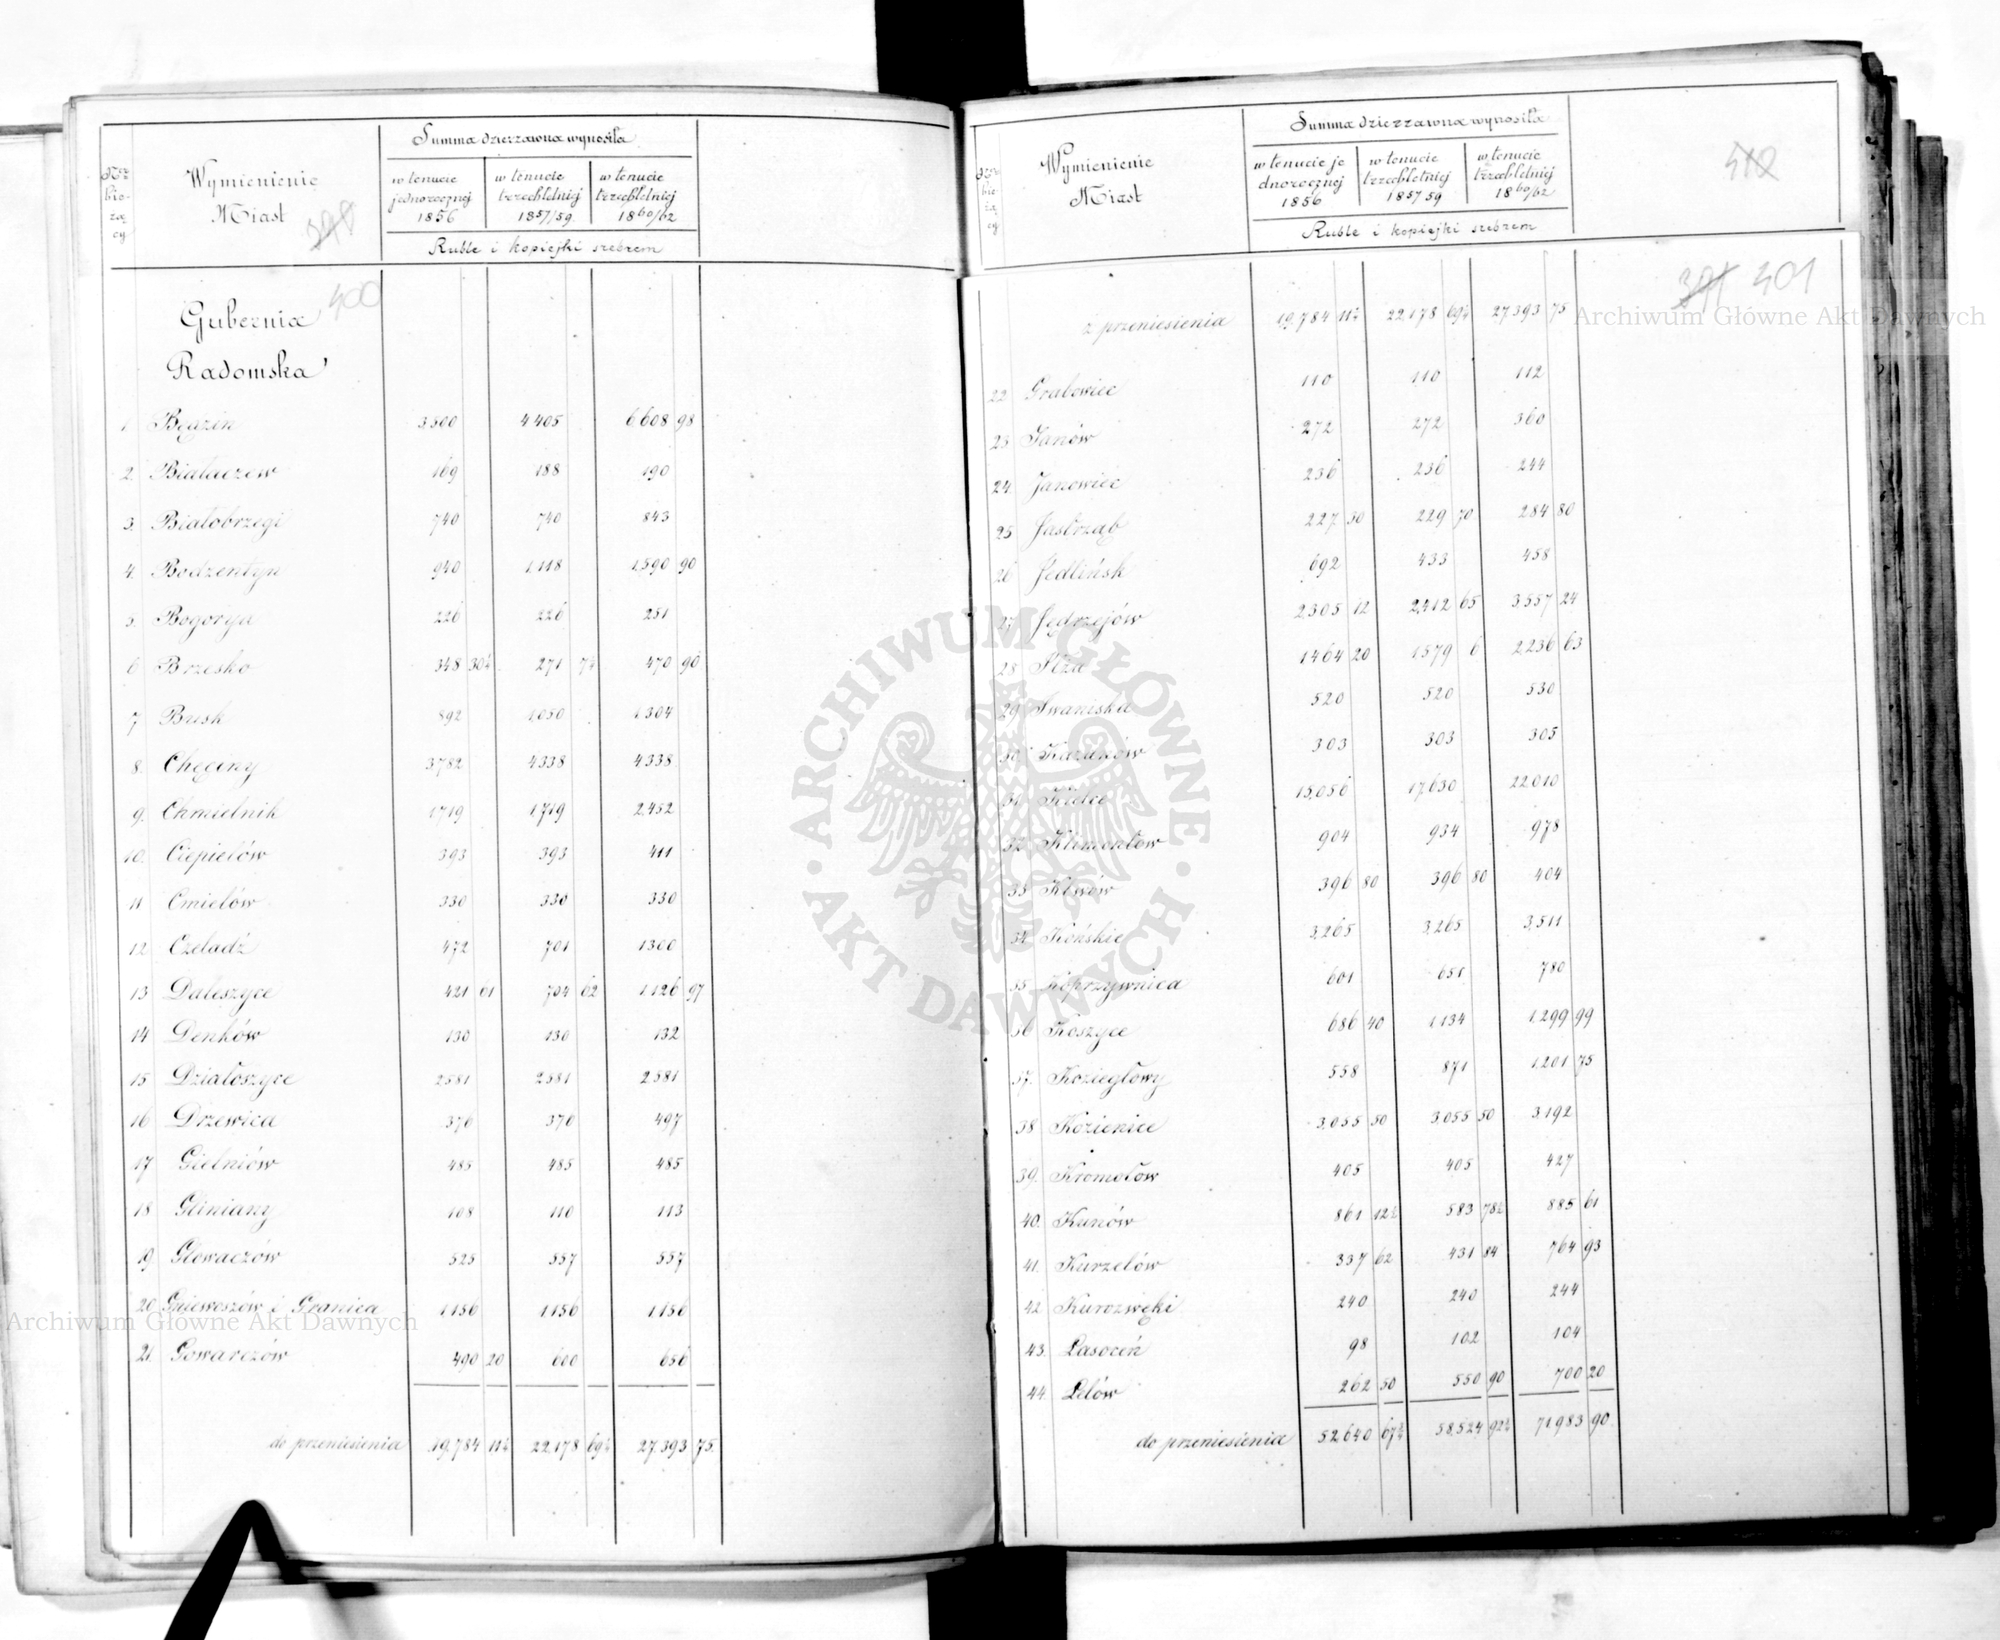 Nr bie-żą-cy
Wymienienie Miast
Summa dzierzawna wynosiła
w tenucie jednorocznej 1856
w tenucie trzechletniej 1857/59
w tenucie trzechletniej 1860/62
Ruble i kopiejki srebrem
398
400
Gubernia
Radomska
1 Będzin 3,500 4405 6,608 98
2. Białaczew 169 188 190
3. Białobrzegi 740 740 843
4. Bodzentyn 940 1,118 1,590 90
5. Bogorya 226 226 251
6 Brzesko 348 30½ 271 7½ 470 90
7. Busk 892 1,050 1,304
8. Chęciny 3,782 4338 4338
9. Chmielnik 1,719 1,719 2,452
10. Ciepielów 393 393 411
11 Cmielów 330 330 330
12 Czeladź 472 701 1300
13 Daleszyce 421 61 704 62 1,126 97
14 Denków 130 130 132
15 Działoszyce 2581 2581 2581
16 Drzewica 376 376 497
17 Gielniów 485 485 485
18 Gliniany 108 110 113
19 Głowaczów 525 557 557
20 Gniewoszów i Granica 1156 1156 1156
21 Gowarczów 490 20 600 656
do przeniesienia 19,784 11½ 22,178 69½ 27,393 75.
Nr bie-żą-cy
Wymienienie Miast
Summa dzierzawna wynosiła
w tenucie jednorocznej 1856
w tenucie trzechletniej 1857/59
w tenucie trzechletniej 1860/62
Ruble i kopiejki srebrem
412
391 401
z przeniesienia 19,784 11½ 22,178 69½ 27,393 75
22 Grabowiec 110 110 112
23 Janów 272 272 360
24 Janowiec 236 236 244
25 Jastrząb 227 50 229 70 284 80
26 Jedlińsk 692 433 458
27 Jędrzejów 2305 12 2,412 65 3,557 24
28 Iłża 1464 20 1579 6 2236 63
29 Iwaniska 520 520 530
30 Kazanów 303 303 305
31 Kielce 15,056 17,630 22,010
32 Klimontów 904 934 978
33 Klwów 396 80 396 80 404
34 Końskie 3,265 3,265 3,511
35 Koprzywnica 601 651 780
36 Koszyce 686 40 1,134 1,299 99
37. Koziegłowy 558 871 1,201 75
38 Kozienice 3,055 50 3,055 50 3,192
39. Kromołów 405 405 427
40. Kunów 861 12½ 583 78½ 885 61
41. Kurzelów 337 62 431 84 764 93
42 Kurozwęki 240 240 244
43. Lasocin 98 102 104
44 Lelów 262 50 550 90 700 20
do przeniesienia 52,640 67½ 58,524 92½ 71,983 90.
Archiwum Główne Akt Dawnych
Archiwum Główne Akt Dawnych
ARCHIWUM GŁÓWNE · AKT DAWNYCH ·